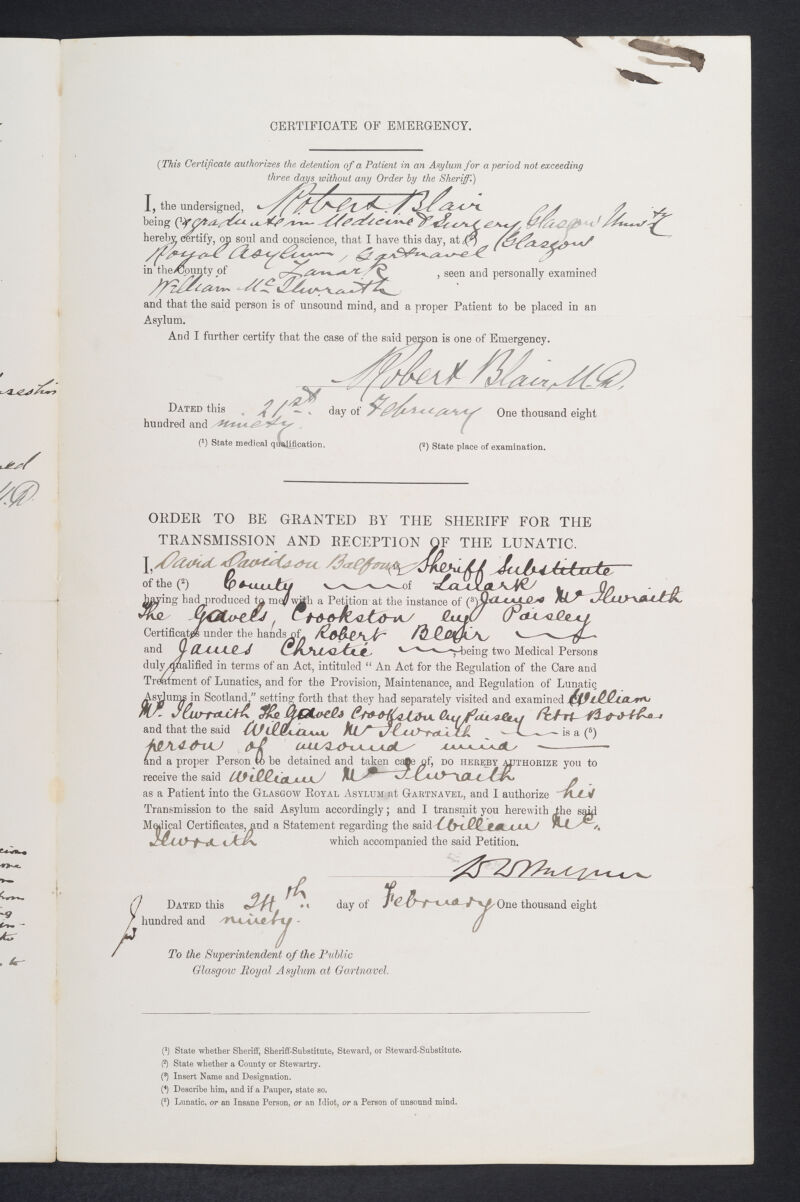 CERTIFICATE OF EMERGENCY.
(This Certificate authorizes the detention of a Patient in an Asylum for a period not exceeding
three days without any Order by the Sheriff.)
I, the undersigned, Robert Blair
being (¹) a graduate in Medicine & Surgery, Glasgow Univty
hereby certify, on soul and conscience, that I have this day, at (²) Glasgow
Royal Asylum, Gartnavel
in the County of Lanark, seen and personally examined
William Mc Ilwraith
and that the said person is of unsound mind, and a proper Patient to be placed in an
Asylum.
And I further certify that the case of the said person is one of Emergency.
Robert Blair, M.D.
DATED this 21st day of February One thousand eight
hundred and ninety.
(¹) State medical qualification. (²) State place of examination.
ORDER TO BE GRANTED BY THE SHERIFF FOR THE
TRANSMISSION AND RECEPTION OF THE LUNATIC.
I, David Davidson Balfour Sheriff Substitute
of the (²) County of Lanark
having had produced to me with a Petition at the instance of (³) James Mc Ilwraith
The Gavels, Crookston by Paisley
Certificates under the hands of Robert Blair
and James Christie being two Medical Persons
duly qualified in terms of an Act, intituled "An Act for the Regulation of the Care and
Treatment of Lunatics, and for the Provision, Maintenance, and Regulation of Lunatic
Asylums in Scotland," setting forth that they had separately visited and examined William
Mc Ilwraith The Gavels Crookston by Paisley
and that the said William Mc Ilwraith is a (⁵)
person of unsound mind
and a proper Person to be detained and taken care of, DO HEREBY AUTHORIZE you to
receive the said William Mc Ilwraith
as a Patient into the GLASGOW ROYAL ASYLUM at GARTNAVEL, and I authorize his
Transmission to the said Asylum accordingly; and I transmit you herewith the said
Medical Certificates, and a Statement regarding the said William Mc
Ilwraith which accompanied the said Petition.
D D Balfour
DATED this 24th day of February One thousand eight
hundred and ninety.
To the Superintendent of the Public
Glasgow Royal Asylum at Gartnavel.
(¹) State whether Sheriff, Sheriff-Substitute, Steward, or Steward-Substitute.
(²) State whether a County or Stewartry.
(³) Insert Name and Designation.
(⁴) Describe him, and if a Pauper, state so.
(⁵) Lunatic, or an Insane Person, or an Idiot, or a Person of unsound mind.